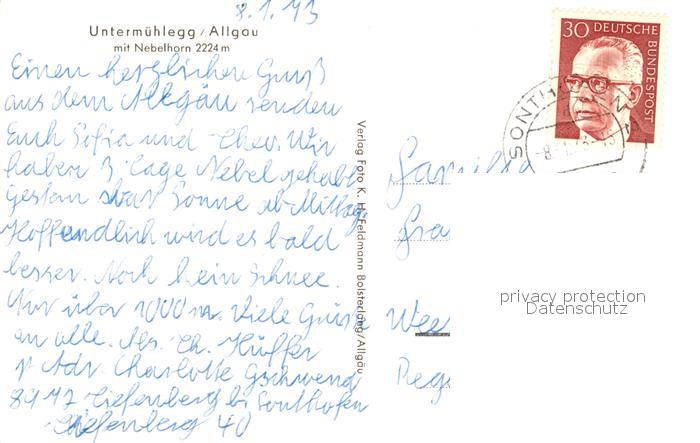 8.1.73
Untermühlegg / Allgäu
mit Nebelhorn 2224 m
Einen herzlichen Gruß
aus dem Allgäu senden
Euch Sofia und Chev. Wir
haben 3 Tage Nebel gehabt
Gestern Sonne ab Mittag
Hoffendlich wird es bald
besser. Noch kein Schnee.
Nur über 1000 m. Viele Grüße
an alle. Abs. Ch. Küffer
Adr. Charlotte Gschwend
8972 Tiefenberg bei Sonthofen
Tiefenberg 40
Verlag Foto K. H. Feldmann Bolsterlang/Allgäu
30 DEUTSCHE
BUNDESPOST
SONTHOFEN
Familie
Fra
Wee
Rege
privacy protection
Datenschutz